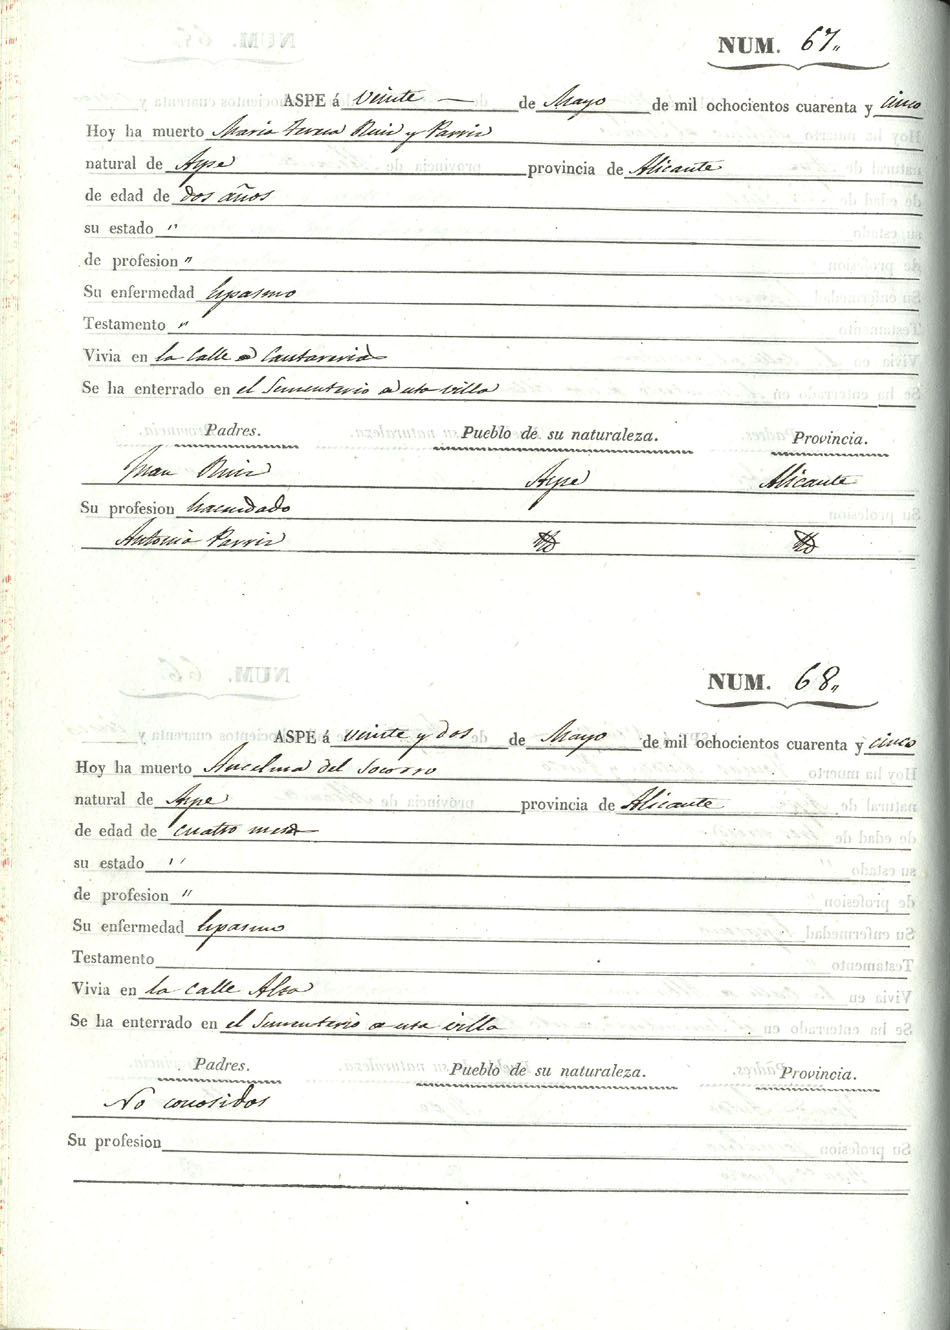 NUM. 67,,
ASPE á veinte — de Mayo de mil ochocientos cuarenta y cinco
Hoy ha muerto Maria Teresa Ruiz y Parriz
natural de Aspe provincia de Alicante
de edad de dos años
su estado "
de profesion "
Su enfermedad Espasmo
Testamento "
Vivia en la Calle de Cantareria
Se ha enterrado en el Sementerio de esta villa
Padres. Pueblo de su naturaleza. Provincia.
Juan Ruiz Aspe Alicante
Su profesion hacendado
Antonia Parriz
NUM. 68,,
ASPE á veinte y dos de Mayo de mil ochocientos cuarenta y cinco
Hoy ha muerto Anselma del Socorro
natural de Aspe provincia de Alicante
de edad de cuatro meses
su estado "
de profesion "
Su enfermedad Espasmo
Testamento
Vivia en la calle Alta
Se ha enterrado en el Sementerio de esta villa
Padres. Pueblo de su naturaleza. Provincia.
No conosidos
Su profesion